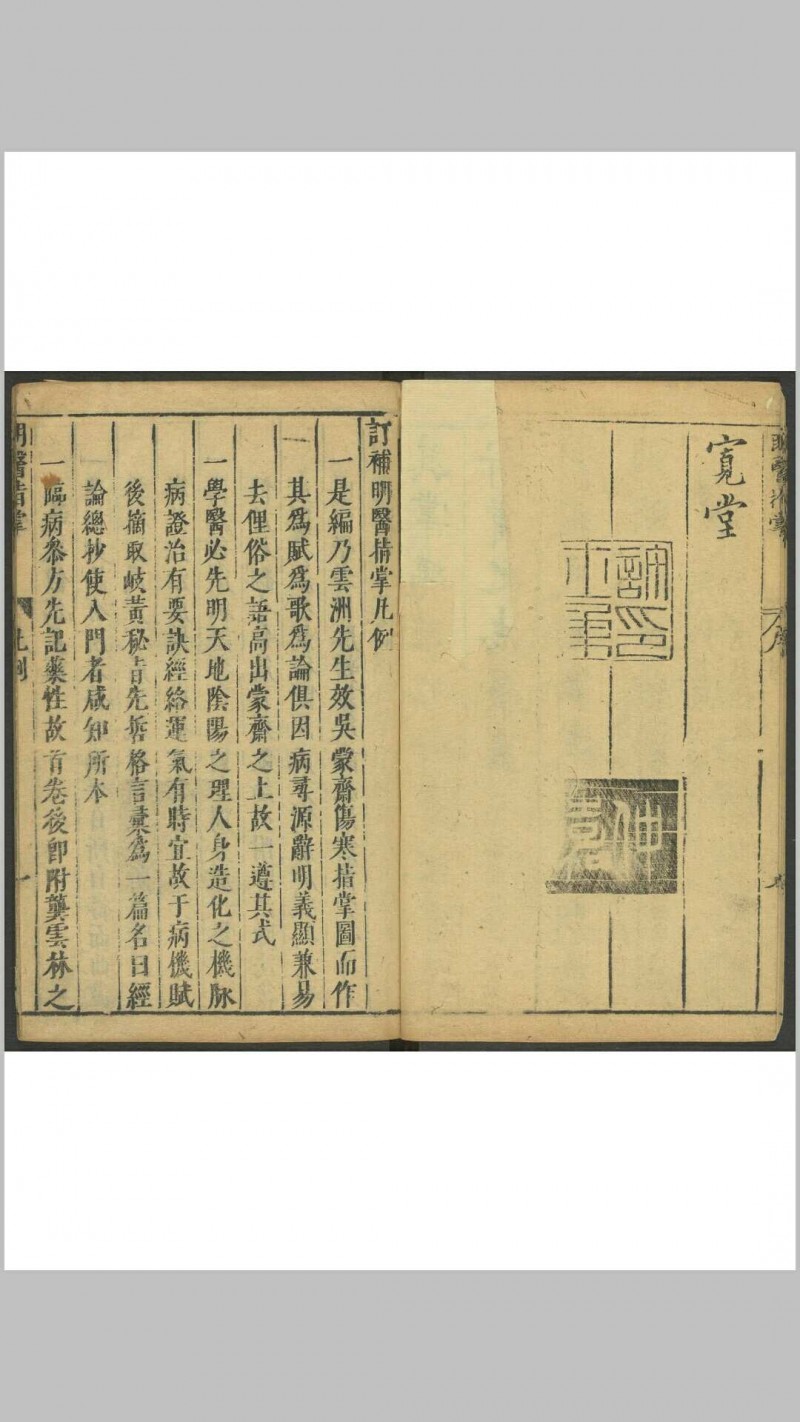 明醫指掌
序
寬堂
訂補明醫指掌凡例
一是編乃雲洲先生效吳蒙齋傷寒指掌圖而作
其為賦為歌為論俱因病尋源辭明義顯兼易
去俚俗之語高出蒙齋之上故一遵其式
一學醫必先明天地陰陽之理人身造化之機脉
病證治有要訣經絡運氣有時宜故于病機賦
後摘取岐黃秘旨先哲格言彙為一篇名曰經
論總抄使入門者咸知所本
一臨病叅方先記藥性故首卷後卽附龔雲林之
明醫指掌
凡例
一